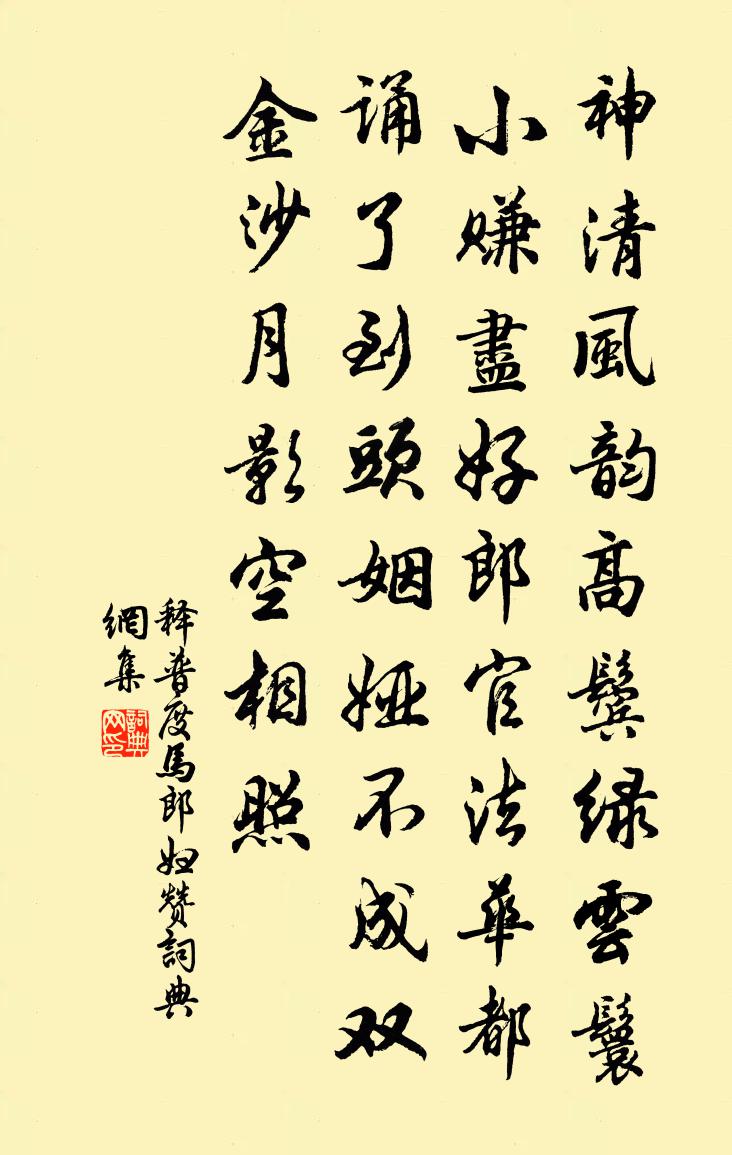 神清風韵高鬓緑雲鬟
小赚盡好郎官法華都
诵了到頭姻娅不成双
金沙月影空相照
释普度馬郎妇赞詞典
網集
詞典网印